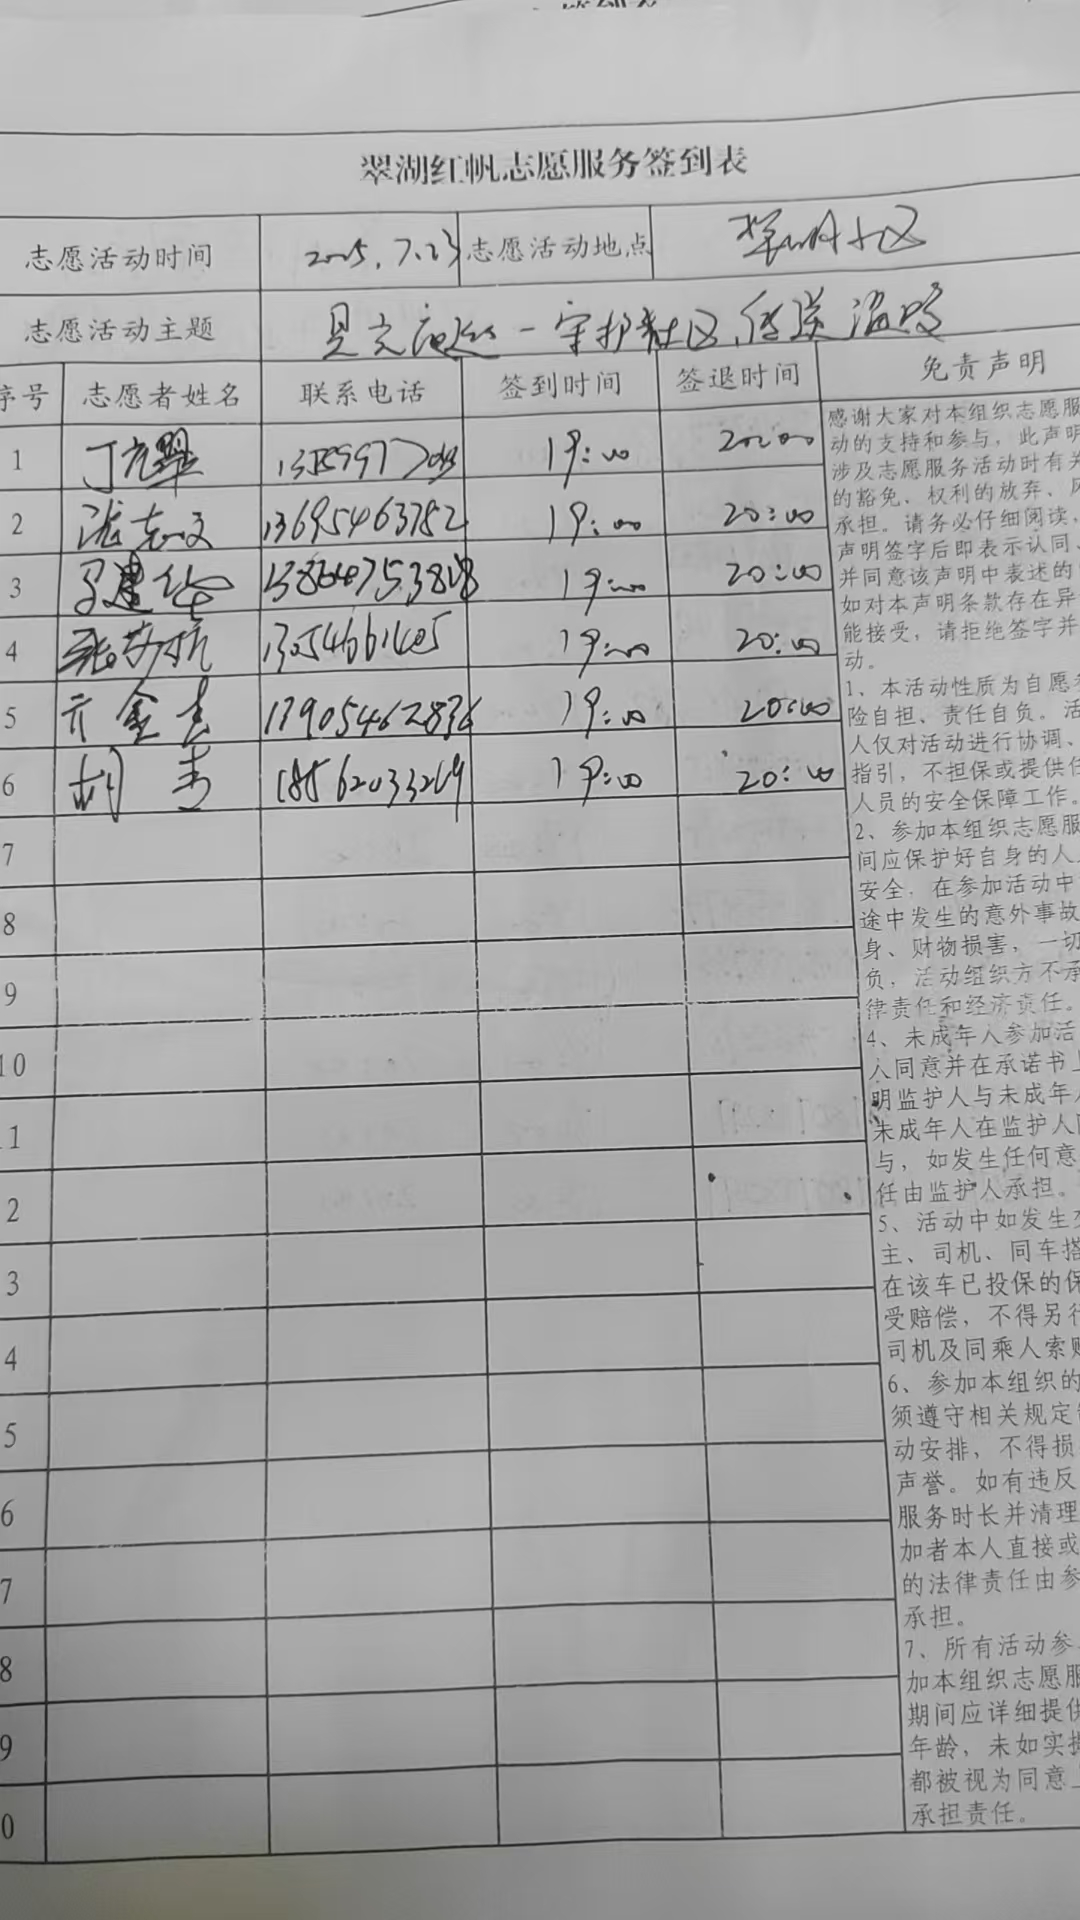 翠湖红帆志愿服务签到表
志愿活动时间 2025.7.23 志愿活动地点 小区
志愿活动主题 守护社区,传递温暖
序号 志愿者姓名 联系电话 签到时间 签退时间 免责声明
1 19:00 20:00
2 13695463752 19:00 20:00
3 19:00 20:00
4 13054661405 19:00 20:00
5 13905462836 19:00 20:00
6 胡 18562033269 19:00 20:00
7
8
9
10
1
2
3
4
5
6
7
8
9
0
感谢大家对本组织志愿服
动的支持和参与，此声明
涉及志愿服务活动时有关
的豁免、权利的放弃、
承担。请务必仔细阅读，
声明签字后即表示认同、
并同意该声明中表述的
如对本声明条款存在异
能接受，请拒绝签字并
动。
1、本活动性质为自愿
险自担、责任自负。活
人仅对活动进行协调、
指引，不担保或提供任
人员的安全保障工作。
2、参加本组织志愿服
间应保护好自身的人
安全，在参加活动中
途中发生的意外事故
身、财物损害，一切
负，活动组织方不承
律责任和经济责任。
4、未成年人参加活
人同意并在承诺书上
明监护人与未成年人
未成年人在监护人
与，如发生任何意
任由监护人承担。
5、活动中如发生
主、司机、同车搭
在该车已投保的保
受赔偿，不得另行
司机及同乘人索赔
6、参加本组织的
须遵守相关规定
动安排，不得损
声誉。如有违反
服务时长并清理
加者本人直接或
的法律责任由参
承担。
7、所有活动参
加本组织志愿服
期间应详细提供
年龄，未如实提
都被视为同意上
承担责任。